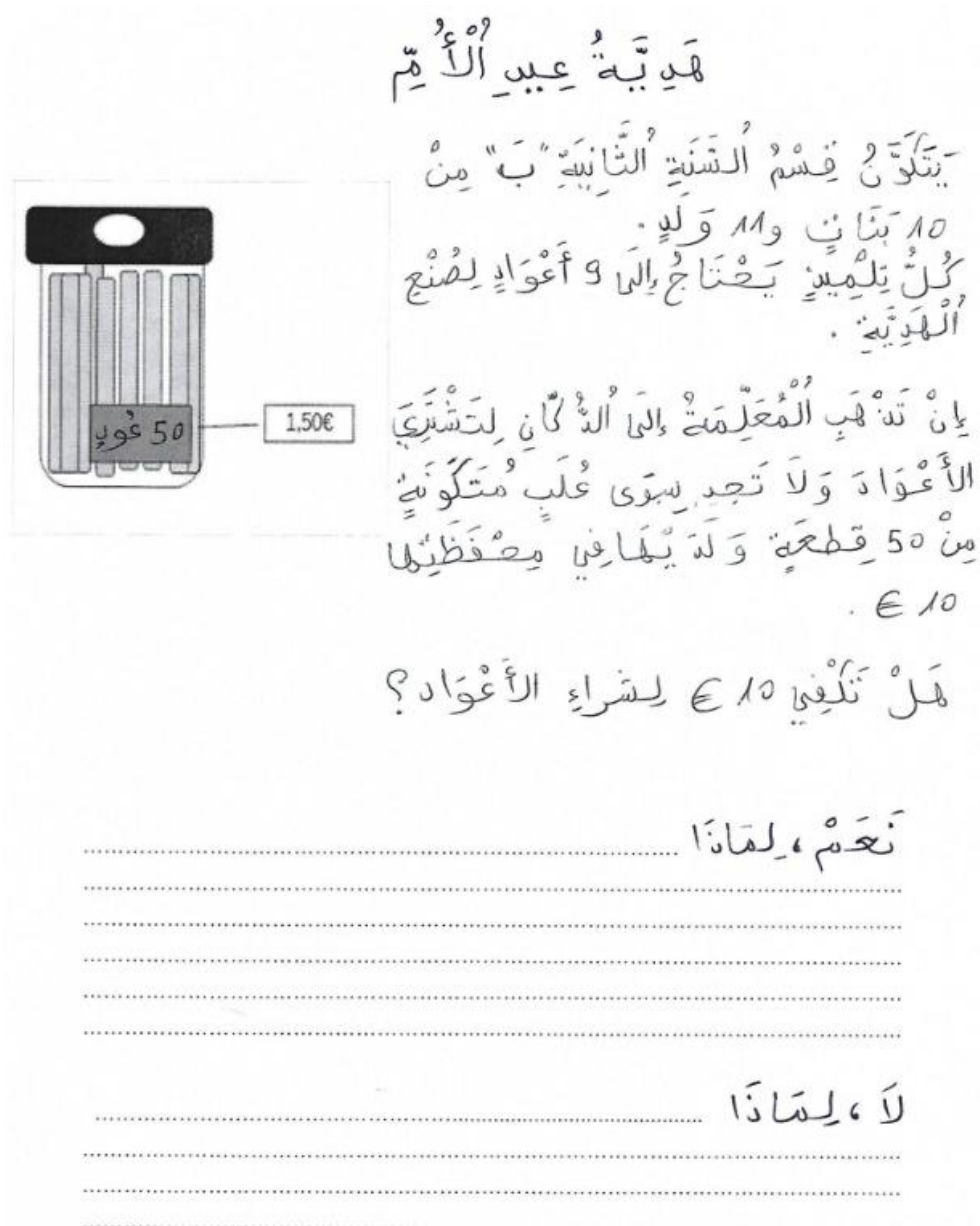 هَدِيَّةُ عِيدِ اُلْأُمِّ
يَتَكَوَّنُ قِسْمُ اُلسَّنَةِ اُلثَّانِيَةِ "بَ" مِنْ
10 بَنَاتٍ و 11 وَلَدٍ.
كُلُّ تِلْمِيذٍ يَحْتَاجُ إِلَى 9 أَعْوَادٍ لِصُنْعِ
اُلْهَدِيَّةِ.
إِنْ تَذْهَبِ اُلْمُعَلِّمَةُ إِلَى اُلدُّكَّانِ لِتَشْتَرِيَ
الأَعْوَادَ وَلَا تَجِد سِوَى عُلَبٍ مُتَكَوِّنَةٍ
مِنْ 50 قِطعَةٍ وَلَدَيْهَا فِي مِحْفَظَتِهَا
10 €.
هَلْ تَكْفِي 10 € لِشراءِ الأَعْوَاد؟
50 عُودٍ
1,50€
نَعَمْ، لِمَاذَا
لَا، لِمَاذَا